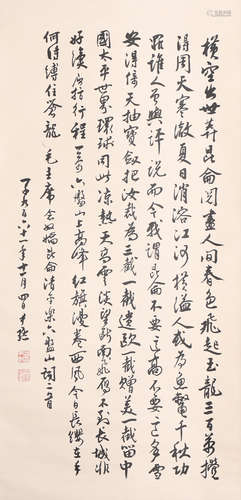 横空出世莽崑崙阅尽人间春色飞起玉龙三百万搅
得周天寒澈夏日消溶江河横溢人或为鱼鳖千秋功
罪谁人曾与评说而今我谓崑崙不要这高不要这多雪
安得倚天抽宝剑把汝裁为三截一截遗欧一截赠美一截留中
国太平世界环球同此凉热天高云淡望断南飞雁不到长城非
好汉屈指行程二万六盘山上高峰红旗漫卷西风今日长缨在手
何时缚住苍龙 毛主席念奴娇崑崙清平乐六盘山词二首